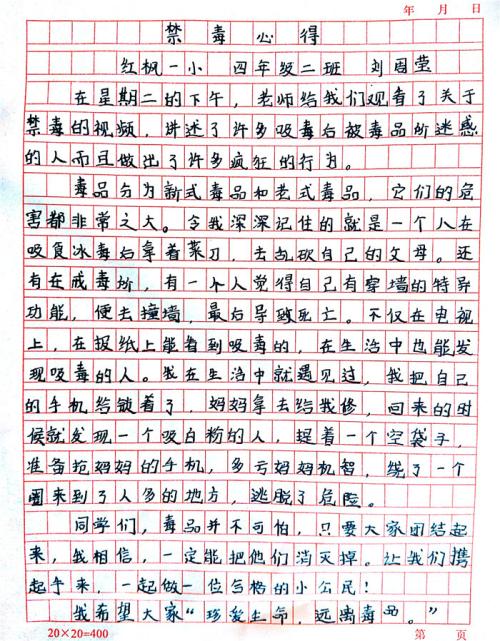 年 月 日
禁毒心得
红枫一小 四年级二班 刘周莹
在星期二的下午，老师给我们观看了关于
禁毒的视频，讲述了许多吸毒后被毒品所迷惑
的人而且做出了许多疯狂的行为。
毒品分为新式毒品和老式毒品，它们的危
害都非常之大。令我深深记住的就是一个人在
吸食冰毒后拿着菜刀，去乱砍自己的父母。还
有在戒毒所，有一个人觉得自己有穿墙的特异
功能，便去撞墙，最后导致死亡。不仅在电视
上，在报纸上能看到吸毒的，在生活中也能发
现吸毒的人。我在生活中就遇见过，我把自己
的手机给锁着了，妈妈拿去给我修，回来的时
候就发现一个吸白粉的人，捏着一个空袋子，
准备抢妈妈的手机，多亏妈妈机智，绕了一个
圈来到了人多的地方，逃脱了危险。
同学们，毒品并不可怕，只要大家团结起
来，我相信，一定能把他们消灭掉。让我们携
起手来，一起做一位合格的小公民！
我希望大家“珍爱生命，远离毒品。”
20×20=400 第 页